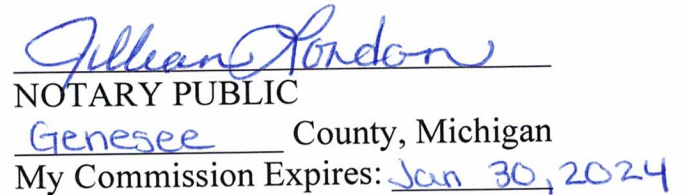 Jillian London
NOTARY PUBLIC
Genesee County, Michigan
My Commission Expires: Jan 30, 2024